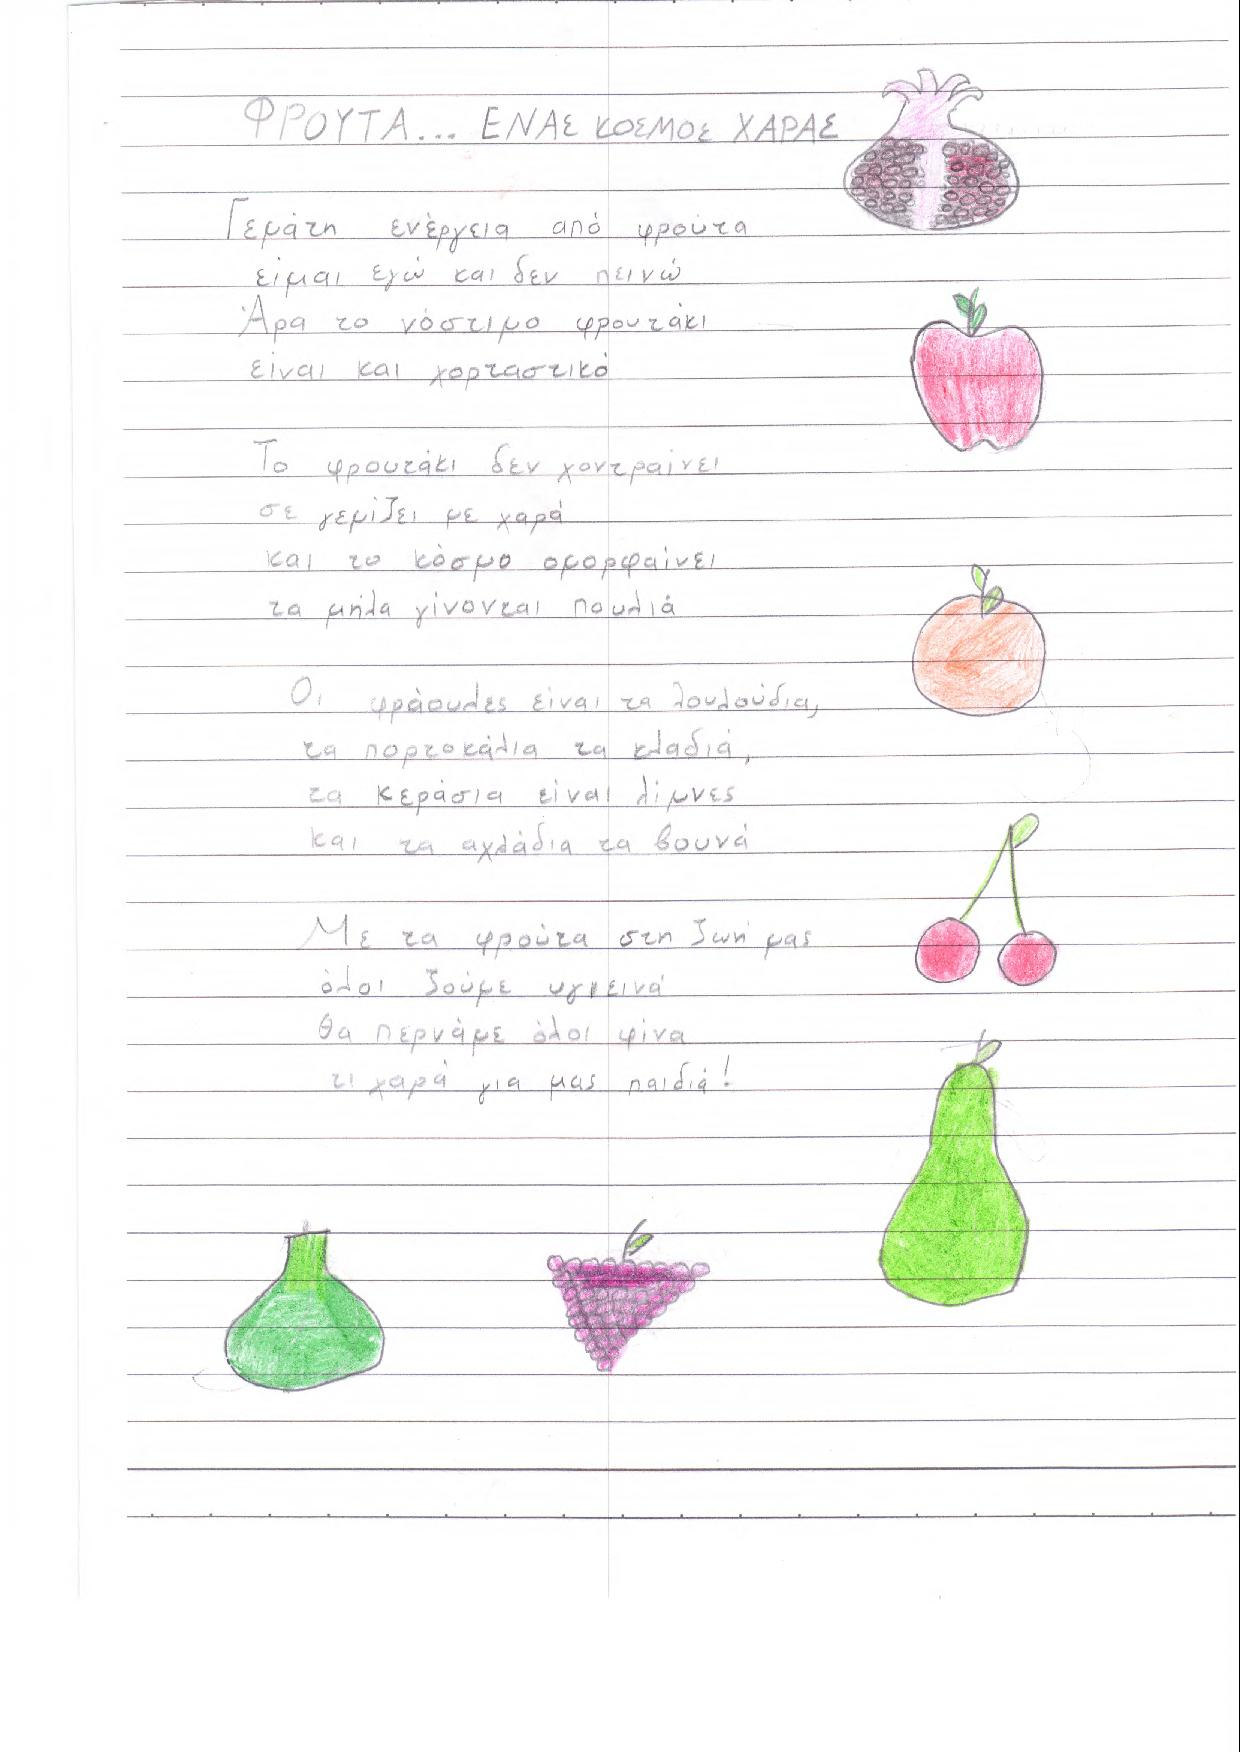 ΦΡΟΥΤΑ... ΕΝΑΣ ΚΟΣΜΟΣ ΧΑΡΑΣ
Γεμάτη ενέργεια από φρούτα
είμαι εγώ και δεν πεινώ
Άρα το νόστιμο φρουτάκι
είναι και χορταστικό
Το φρουτάκι δεν χοντραίνει
σε γεμίζει με χαρά
και το κόσμο ομορφαίνει
τα μήλα γίνονται πουλιά
Οι φράουλες είναι τα λουλούδια,
τα πορτοκάλια τα κλαδιά,
τα κεράσια είναι λίμνες
και τα αχλάδια τα βουνά
Με τα φρούτα στη ζωή μας
όλοι ζούμε υγιεινά
θα περνάμε όλοι φίνα
τι χαρά για μας παιδιά!